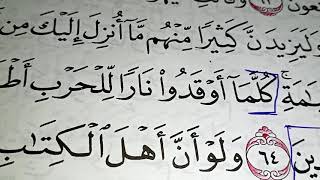 وَلَيَزِيدَنَّ كَثِيرًا مِّنْهُم مَّآ أُنزِلَ إِلَيْكَ مِن
كُلَّمَآ أَوْقَدُوا۟ نَارًا لِّلْحَرْبِ
٦٤ وَلَوْ أَنَّ أَهْلَ ٱلْكِتَٰبِ